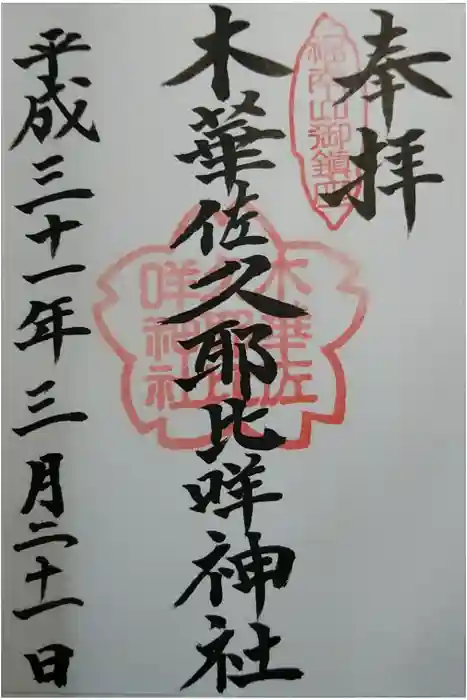 奉拝
木華佐久耶比咩神社
平成三十一年三月二十一日
福南山御鎮座
木華佐
久耶比
咩神社